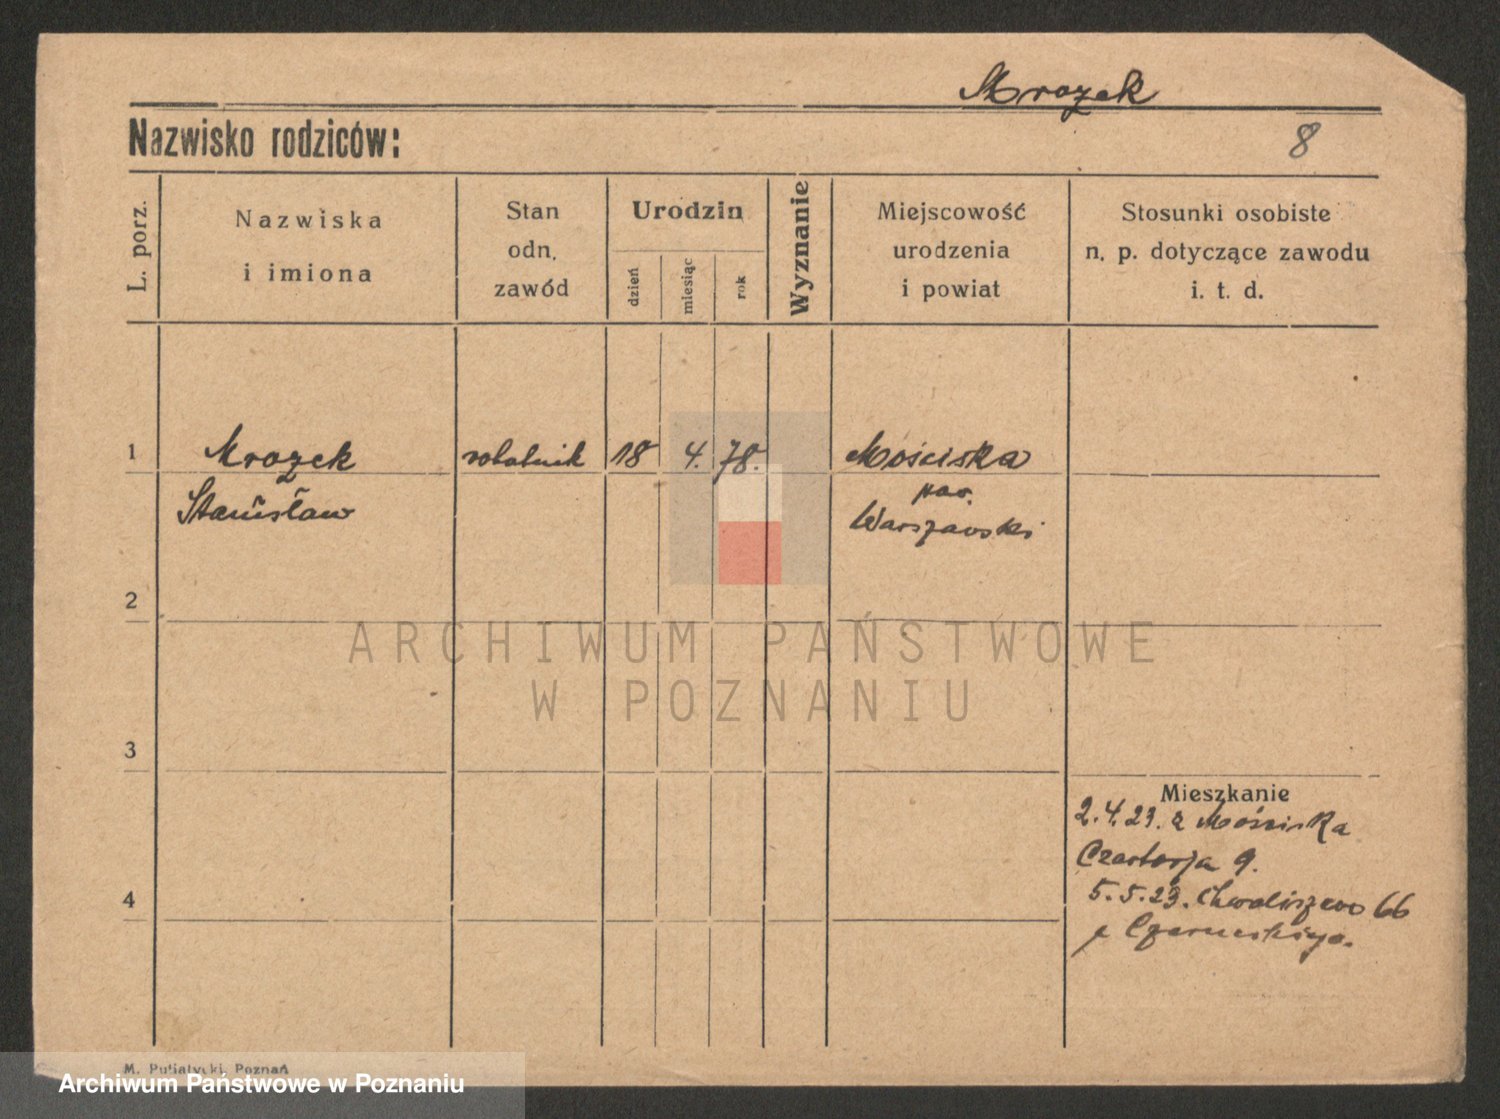 Mrozek
Nazwisko rodziców:
8
L. porz.
Nazwiska
i imiona
Stan
odn.
zawód
Urodzin
dzień
miesiąc
rok
Wyznanie
Miejscowość
urodzenia
i powiat
Stosunki osobiste
n. p. dotyczące zawodu
i. t. d.
1
Mrozek robotnik 18 4. 78. Mościska
Stanisław
pow.
Warszawski
2
ARCHIWUM PAŃSTWOWE
W POZNANIU
3
Mieszkanie
2.4.23. z Mościska
Czartorja 9.
4
5.5.23. Chwaliszewo 66
M. Putiatycki, Poznań
Archiwum Państwowe w Poznaniu